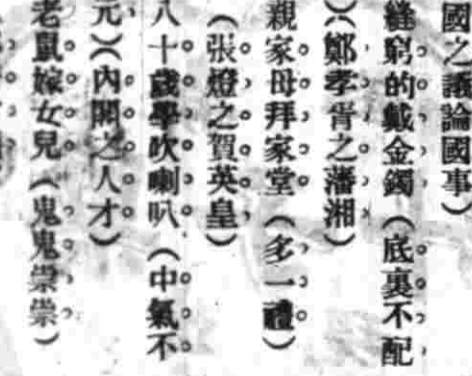 國之議論國事)
縫窮的戴金鐲(底裏不配
)(鄭孝胥之藩湘)
親家母拜家堂(多一禮)
(張燈之賀英皇)
八十歲學吹喇叭(中氣不
元)(內閣之人才)
老鼠嫁女兒(鬼鬼祟祟)